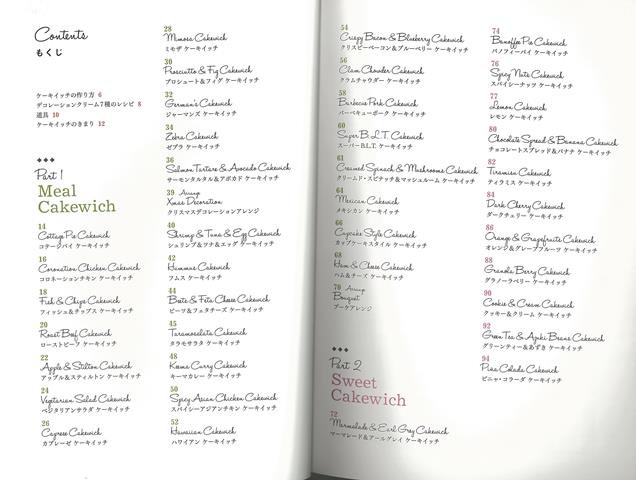 Contents
もくじ
ケーキイッチの作り方 6
デコレーションクリーム7種のレシピ 8
道具 10
ケーキイッチのきまり 12
Part 1
Meal
Cakewich
14
Cottage Pie Cakewich
コテージパイ ケーキイッチ
16
Coronation Chicken Cakewich
コロネーションチキン ケーキイッチ
18
Fish & Chips Cakewich
フィッシュ&チップス ケーキイッチ
20
Roast Beef Cakewich
ローストビーフ ケーキイッチ
22
Apple & Stilton Cakewich
アップル&スティルトン ケーキイッチ
24
Vegetarian Salad Cakewich
ベジタリアンサラダ ケーキイッチ
26
Caprese Cakewich
カプレーゼ ケーキイッチ
28
Mimosa Cakewich
ミモザ ケーキイッチ
30
Prosciutto & Fig Cakewich
プロシュート&フィグ ケーキイッチ
32
German's Cakewich
ジャーマンズ ケーキイッチ
34
Zebra Cakewich
ゼブラ ケーキイッチ
36
Salmon Tartare & Avocado Cakewich
サーモンタルタル&アボカド ケーキイッチ
39 Arrange
Xmas Decoration
クリスマスデコレーションアレンジ
40
Shrimp & Tuna & Egg Cakewich
シュリンプ&ツナ&エッグ ケーキイッチ
42
Hummus Cakewich
フムス ケーキイッチ
44
Beets & Feta Cheese Cakewich
ビーツ&フェタチーズ ケーキイッチ
45
Taramosalata Cakewich
タラモサラタ ケーキイッチ
48
Keema Curry Cakewich
キーマカレー ケーキイッチ
50
Spicy Asian Chicken Cakewich
スパイシーアジアンチキン ケーキイッチ
52
Hawaiian Cakewich
ハワイアン ケーキイッチ
54
Crispy Bacon & Blueberry Cakewich
クリスピーベーコン&ブルーベリー ケーキイッチ
56
Clam Chowder Cakewich
クラムチャウダー ケーキイッチ
58
Barbecue Pork Cakewich
バーベキューポーク ケーキイッチ
60
Super B.L.T. Cakewich
スーパーB.L.T. ケーキイッチ
61
Creamed Spinach & Mushrooms Cakewich
クリームド・スピナッチ&マッシュルーム ケーキイッチ
64
Mexican Cakewich
メキシカン ケーキイッチ
66
Cupcake Style Cakewich
カップケーキスタイル ケーキイッチ
68
Ham & Cheese Cakewich
ハム&チーズ ケーキイッチ
70 Arrange
Bouquet
ブーケアレンジ
Part 2
Sweet
Cakewich
72
Marmalade & Earl Grey Cakewich
マーマレード&アールグレイ ケーキイッチ
74
Banoffee Pie Cakewich
バノフィーパイ ケーキイッチ
76
Spicy Nuts Cakewich
スパイシーナッツ ケーキイッチ
77
Lemon Cakewich
レモン ケーキイッチ
80
Chocolate Spread & Banana Cakewich
チョコレートスプレッド&バナナ ケーキイッチ
82
Tiramisu Cakewich
ティラミス ケーキイッチ
84
Dark Cherry Cakewich
ダークチェリー ケーキイッチ
86
Orange & Grapefruits Cakewich
オレンジ&グレープフルーツ ケーキイッチ
88
Granola Berry Cakewich
グラノーラベリー ケーキイッチ
90
Cookie & Cream Cakewich
クッキー&クリーム ケーキイッチ
92
Green Tea & Azuki Beans Cakewich
グリーンティー&あずき ケーキイッチ
94
Pina Colada Cakewich
ピニャ・コラーダ ケーキイッチ